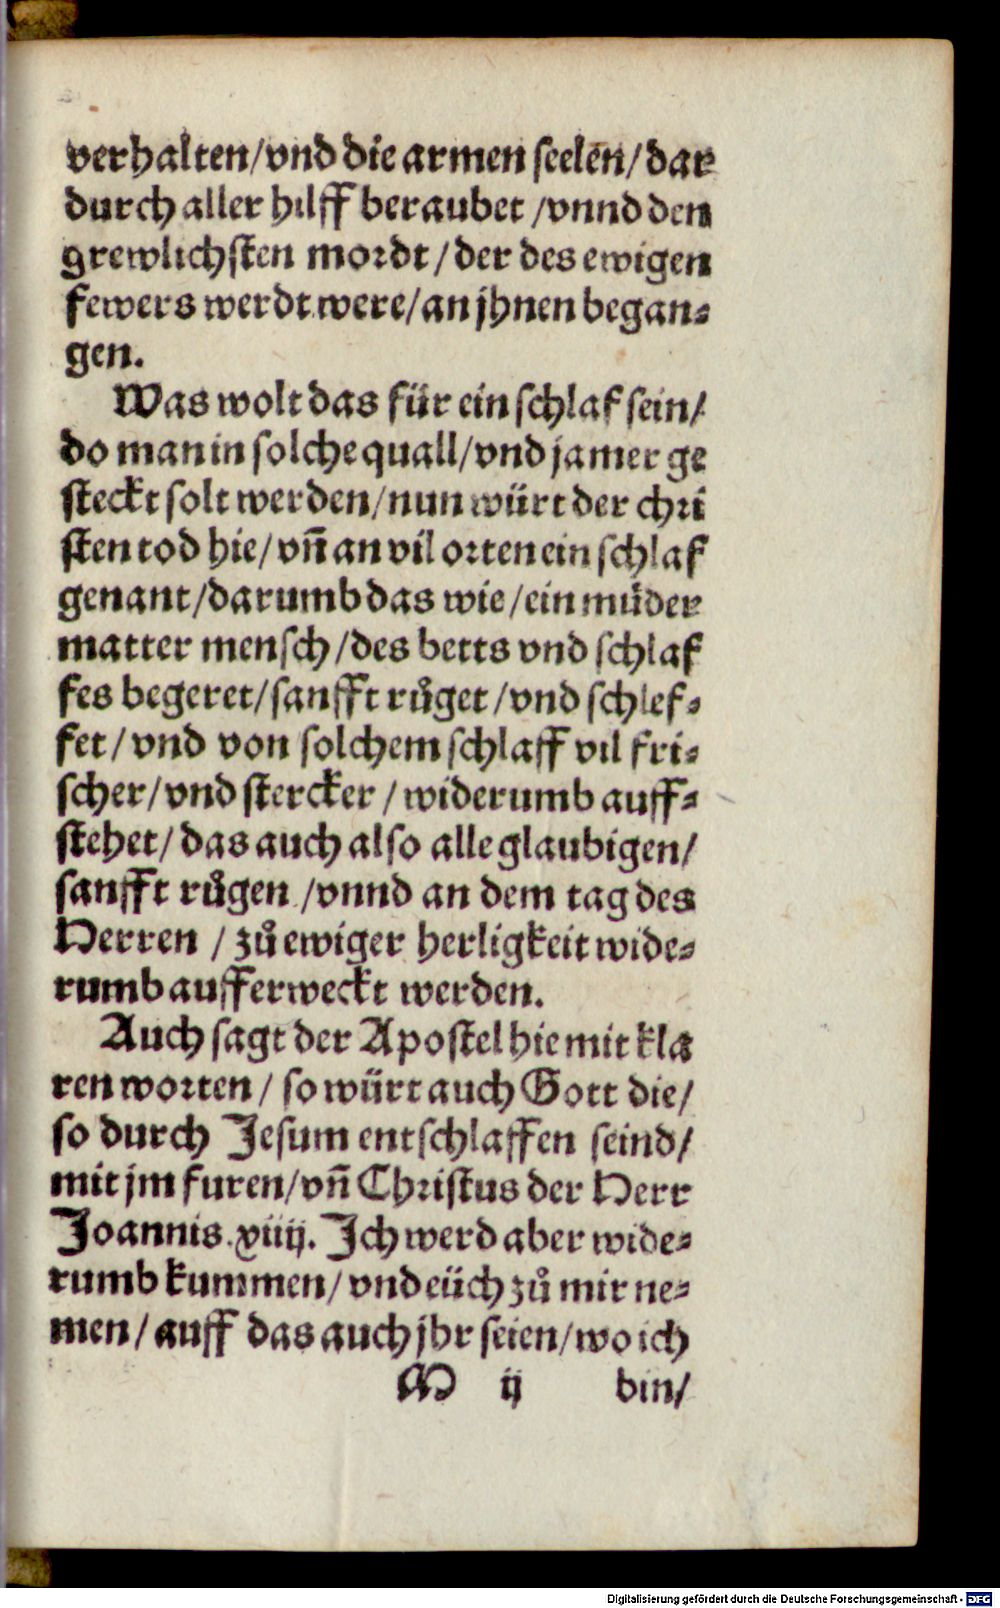 verhalten/vnd die armen seelen/dar
durch aller hilff beraubet /vnnd den
grewlichsten mordt/der des ewigen
fewers werdt were/an jhnen began⸗
gen.
Was wolt das für ein schlaf sein/
do man in solche quall/vnd jamer ge
steckt solt werden/nun würt der chri
sten tod hie/vñ an vil orten ein schlaf
genant/darumb das wie/ein müder
matter mensch/des betts vnd schlaf
fes begeret/sanfft růget/vnd schlef⸗
fet/vnd von solchem schlaff vil fri⸗
scher/vnd stercker/widerumb auff⸗
stehet/das auch also alle glaubigen/
sanfft růgen/vnnd an dem tag des
Herren /zů ewiger herligkeit wide⸗
rumb aufferweckt werden.
Auch sagt der Apostel hie mit kla
ren worten/so würt auch Gott die/
so durch Jesum entschlaffen seind/
mit jm furen/vñ Christus der Herr
Joannis. xiiij. Ich werd aber wide⸗
rumb kummen/vnd eüch zů mir ne⸗
men/auff das auch jhr seien/wo ich
M ij bin/
Digitalisierung gefördert durch die Deutsche Forschungsgemeinschaft - DFG